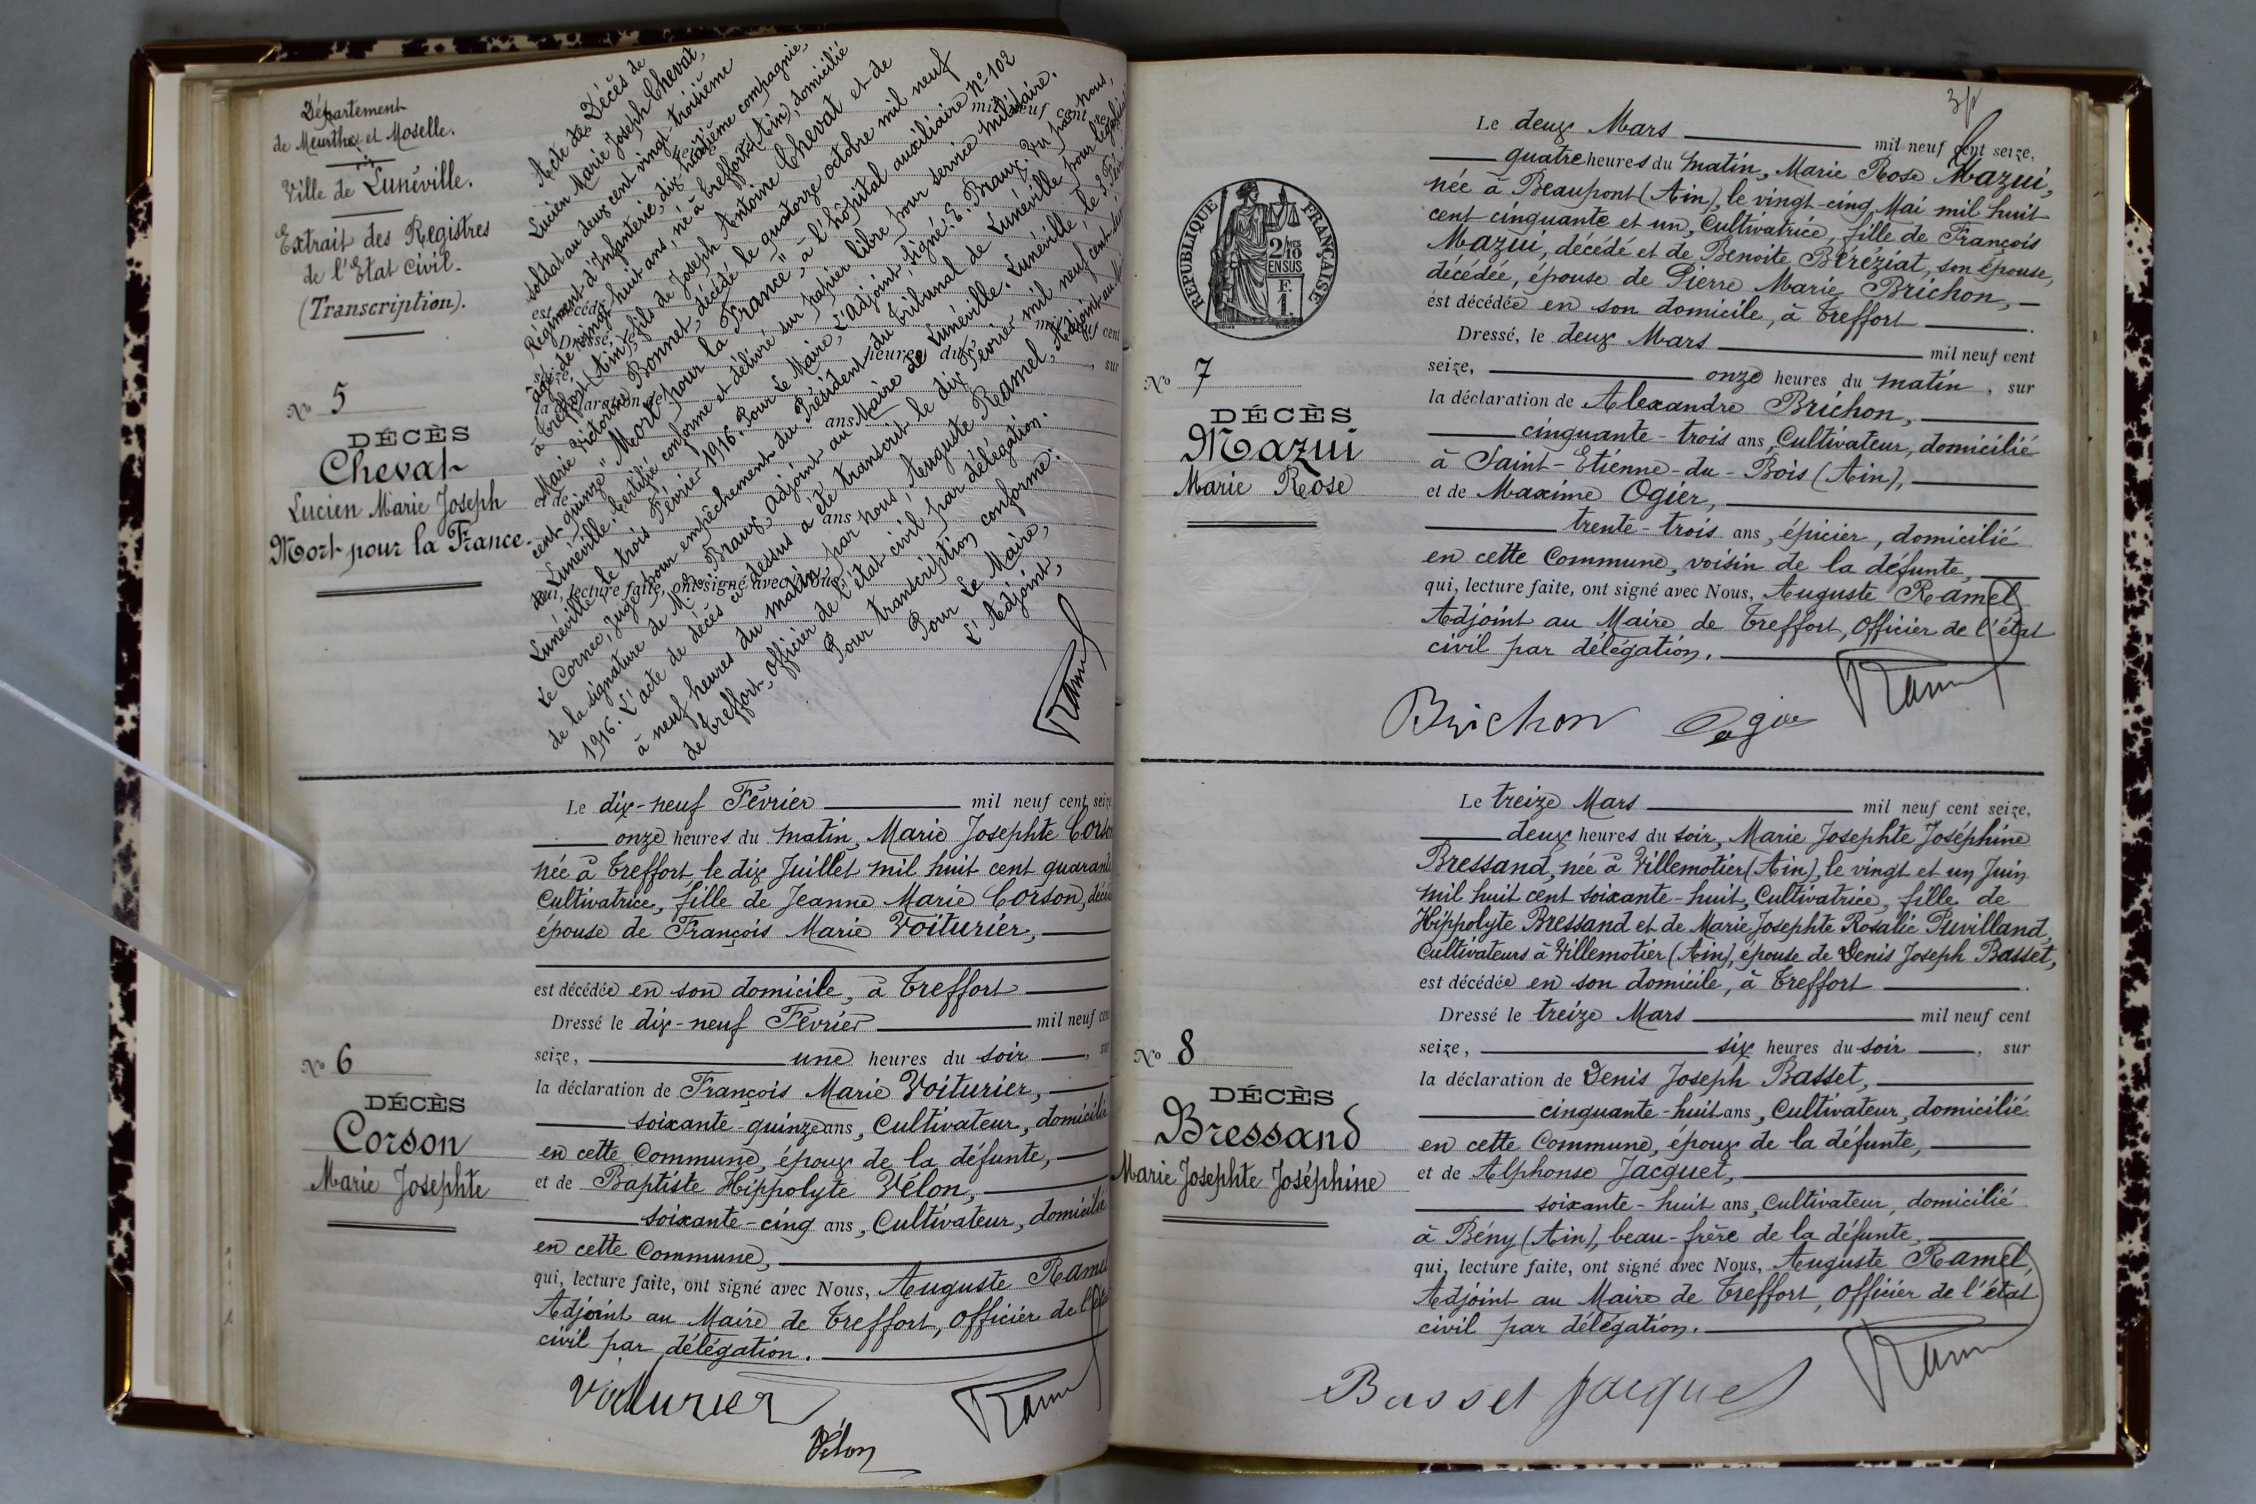 Département
de Meurthe et Moselle.
Ville de Lunéville.
Extrait des Registres
de l'Etat Civil.
(Transcription).
N° 5
DÉCÈS
Chevat
Lucien Marie Joseph
Mort pour la France.
Acte de Décès de
Lucien Marie Joseph Chevat,
soldat au deux cent vingt-troisième
Régiment d'Infanterie, dix huitième compagnie,
âgé de vingt huit ans, né à Treffort (Ain), domicilié
à Treffort (Ain), fils de Joseph Antoine Chevat et de
Marie Victorine Bonnet, décédé le quatorze octobre mil neuf
cent quinze "Mort pour la France", à l'hôpital auxiliaire N° 102
de Lunéville. Certifié conforme et délivré sur papier libre pour service militaire.
Lunéville, le trois Février 1916. Pour le Maire, L'adjoint signé: E. Braux. Vu par nous,
Le Cornec, Juge pour empêchement du Président du Tribunal de Lunéville pour légalisation
de la signature de M. Braux, adjoint au Maire de Lunéville. Lunéville, le 3 Février
1916. L'acte de décès ci dessus a été transcrit le dix Février mil neuf cent seize
à neuf heures du matin, par nous Auguste Ramel, Adjoint au Maire
de Treffort, Officier de l'état civil par délégation.
Pour transcription conforme:
Pour le Maire,
L'Adjoint,
Ramel
Le dix-neuf Février mil neuf cent seize,
onze heures du matin, Marie Josephte Corson
née à Treffort, le dix Juillet mil huit cent quarante
Cultivatrice, fille de Jeanne Marie Corson,
épouse de François Marie Voiturier,
est décédée en son domicile, à Treffort
Dressé le dix-neuf Février mil neuf cent
seize, une heures du soir, sur
N° 6
DÉCÈS
Corson
Marie Josephte
la déclaration de François Marie Voiturier,
soixante-quinze ans, Cultivateur, domicilié
en cette Commune, époux de la défunte,
et de Baptiste Hippolyte Vélon,
soixante-cinq ans, Cultivateur, domicilié
en cette Commune,
qui, lecture faite, ont signé avec Nous, Auguste Ramel
Adjoint au Maire de Treffort, Officier de l'état
civil par délégation.
Voiturier
Vélon
Ramel
RÉPUBLIQUE FRANÇAISE
2/10
EN SUS
F.
1.
N° 7
DÉCÈS
Mazui
Marie Rose
Le deux Mars mil neuf cent seize,
quatre heures du matin, Marie Rose Mazui,
née à Beaupont (Ain), le vingt-cinq Mai mil huit
cent cinquante et un, Cultivatrice, fille de François
Mazui, décédé et de Benoite Béréziat, son épouse,
décédée, épouse de Pierre Marie Brichon,
est décédée en son domicile, à Treffort
Dressé, le deux Mars mil neuf cent
seize, onze heures du matin, sur
la déclaration de Alexandre Brichon,
cinquante-trois ans, Cultivateur, domicilié
à Saint-Etienne-du-Bois (Ain),
et de Maxime Ogier,
trente-trois ans, épicier, domicilié
en cette Commune, voisin de la défunte,
qui, lecture faite, ont signé avec Nous, Auguste Ramel
Adjoint au Maire de Treffort, Officier de l'état
civil par délégation.
Brichon Ogier Ramel
Le treize Mars mil neuf cent seize,
deux heures du soir, Marie Josephte Joséphine
Bressand, née à Villemotier (Ain), le vingt et un Juin
mil huit cent soixante-huit, Cultivatrice, fille de
Hippolyte Bressand et de Marie Josephte Rosalie Puvilland,
Cultivateurs à Villemotier (Ain), épouse de Denis Joseph Basset,
est décédée en son domicile, à Treffort
Dressé le treize Mars mil neuf cent
seize, six heures du soir, sur
N° 8
DÉCÈS
Bressand
Marie Josephte Joséphine
la déclaration de Denis Joseph Basset,
cinquante-huit ans, Cultivateur, domicilié
en cette Commune, époux de la défunte,
et de Alphonse Jacquet,
soixante-huit ans, Cultivateur, domicilié
à Bény (Ain), beau-frère de la défunte,
qui, lecture faite, ont signé avec Nous, Auguste Ramel,
Adjoint au Maire de Treffort, Officier de l'état
civil par délégation.
Basset Jacquet Ramel